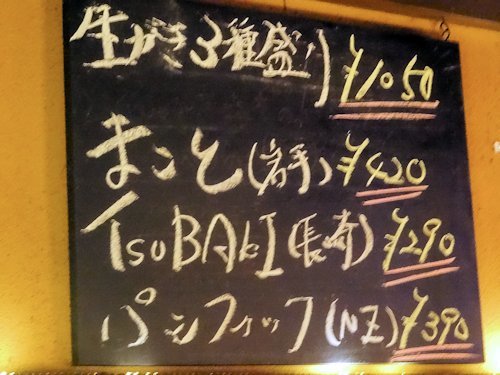 生がき3種盛り ¥1050
まこと(岩手) ¥420
ISOBAKI(長崎) ¥290
パシフィック(NZ) ¥390